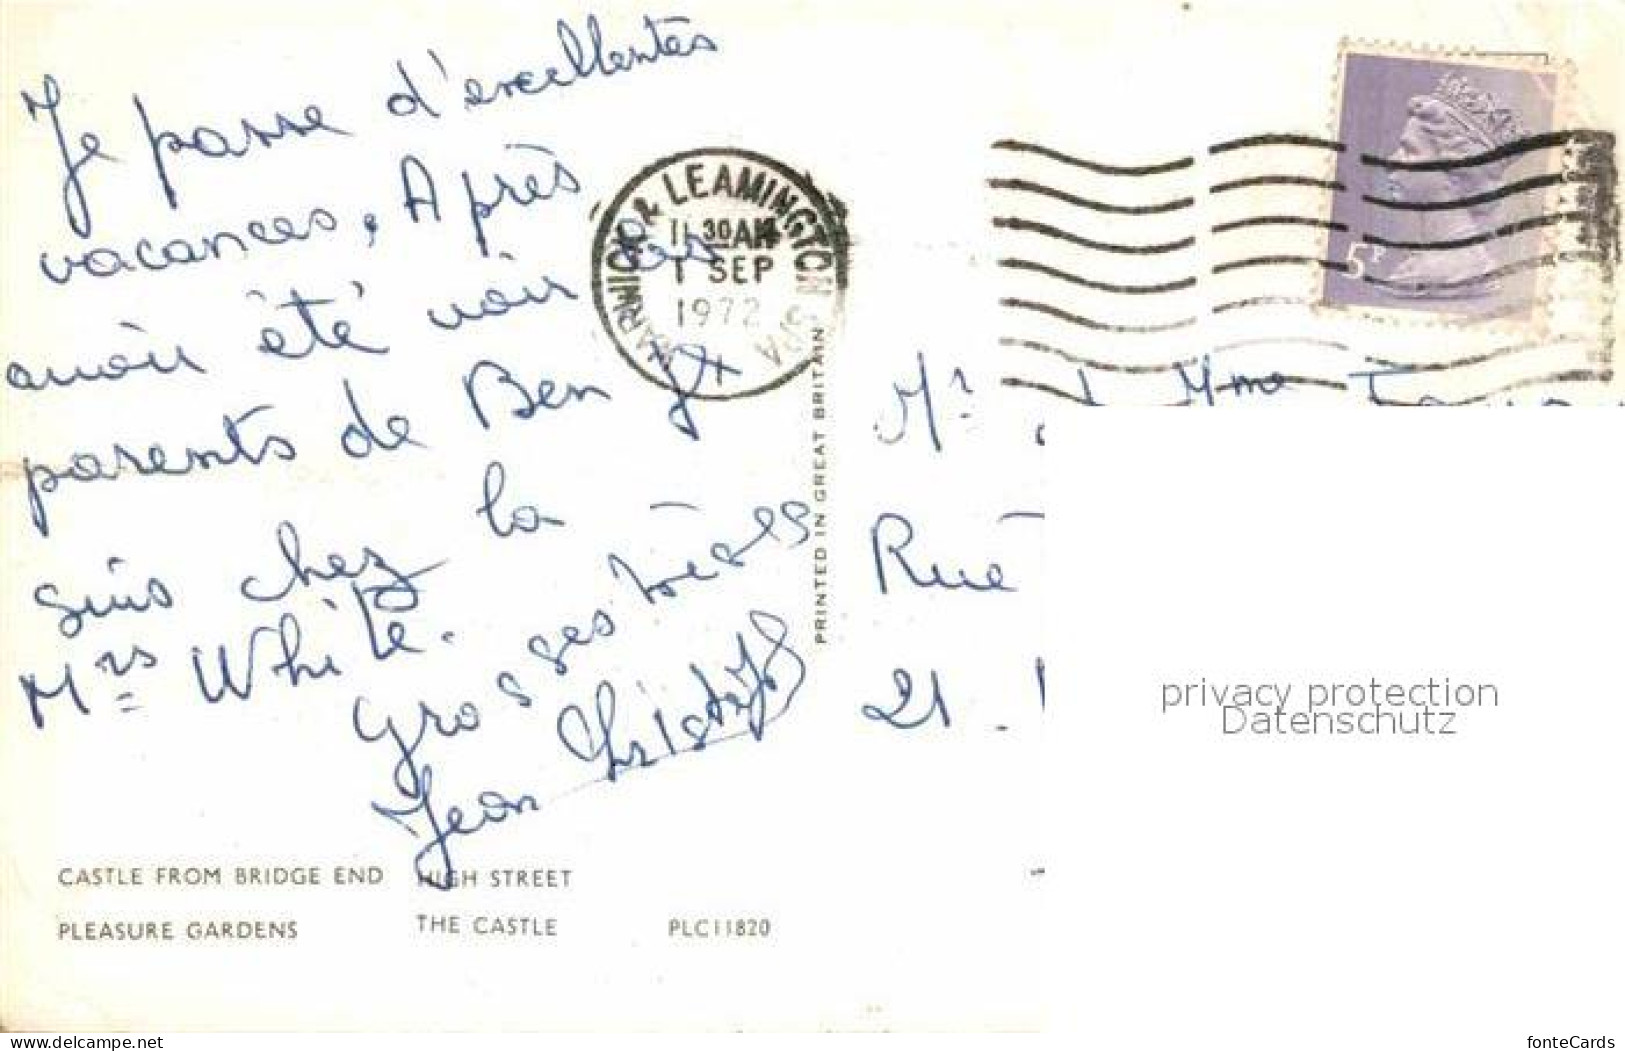 Je passe d'excellentes
vacances. Après
avoir été voir les
parents de Ben je
suis chez la
Mrs White.
Grosses
Jean Christophe
WARWICK & LEAMINGTON SPA
11 30 AM
1 SEP
1972
5P
PRINTED IN GREAT BRITAIN
Mr Mme
Rue
21
privacy protection
Datenschutz
CASTLE FROM BRIDGE END HIGH STREET
PLEASURE GARDENS THE CASTLE PLC11820
www.delcampe.net
fonteCards